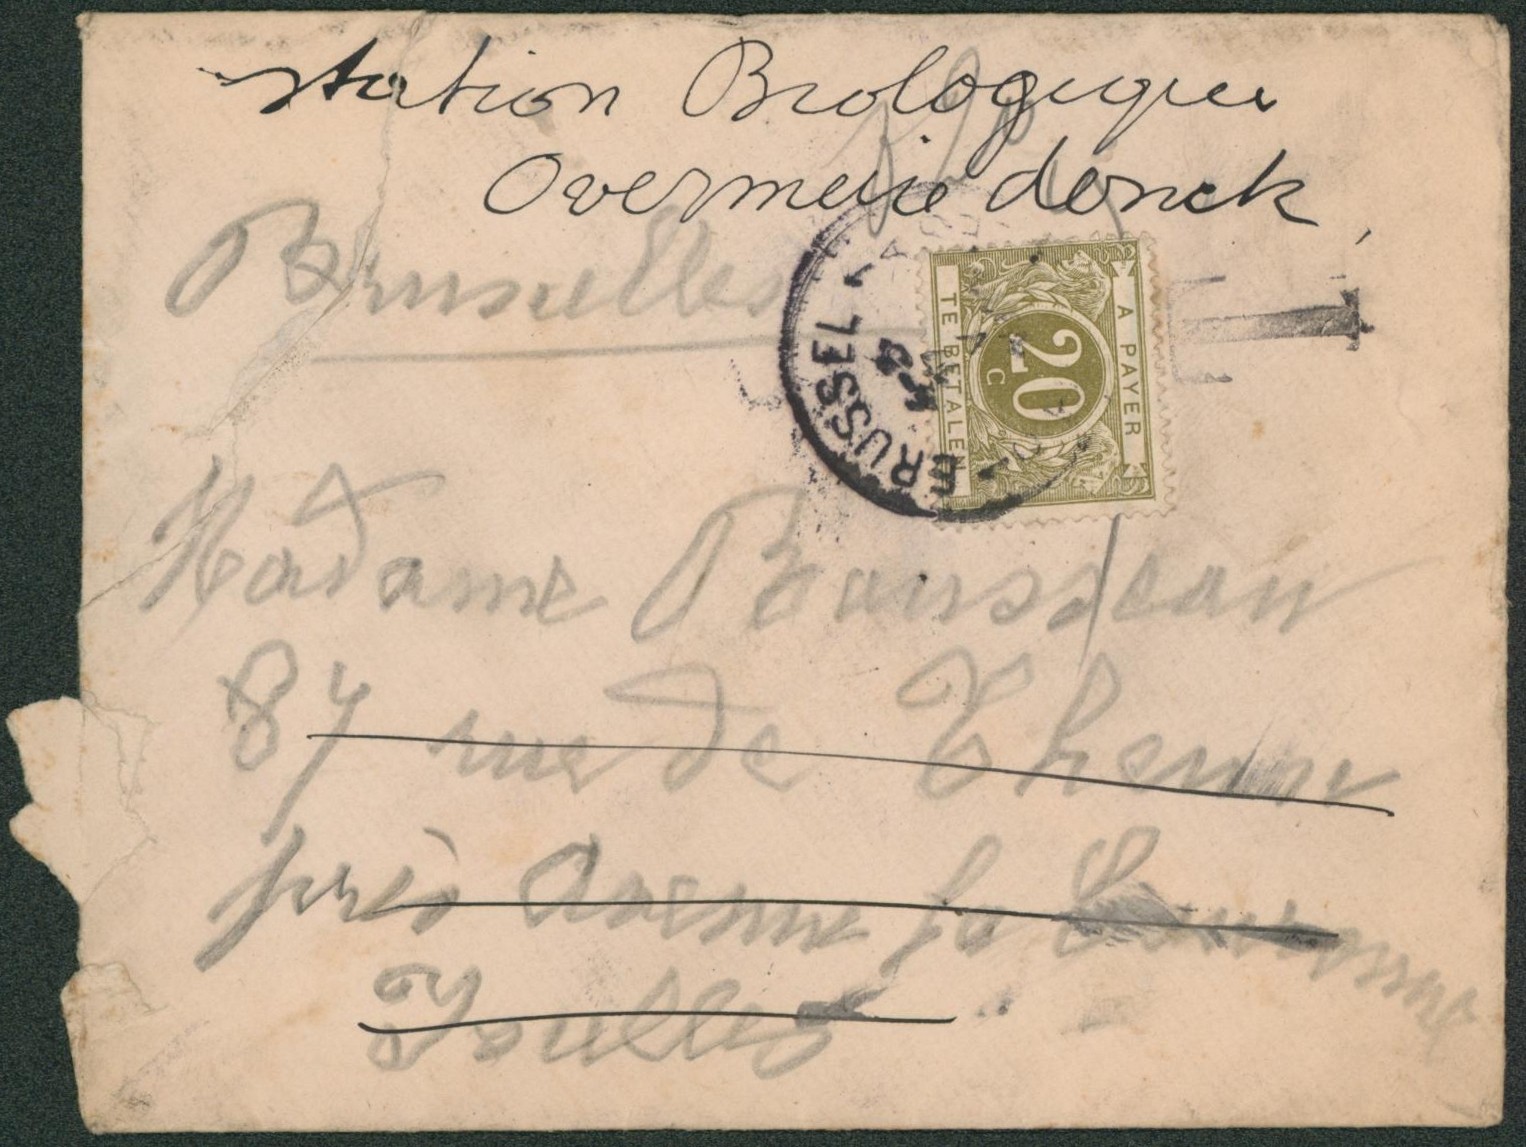 station Biologique
Overmeire donck
Bruxelles
A PAYER
20
C
TE BETALEN
BRUSSEL
T
Madame Rousseau
87 rue de Theux
près avenue la Couronne
Ixelles